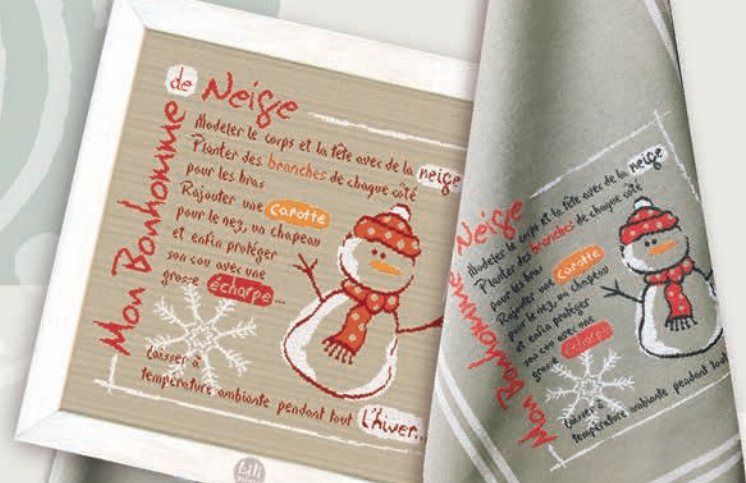 Mon Bonhomme
de Neige
Modeler le corps et la tête avec de la neige
Planter des branches de chaque côté
pour les bras
Rajouter une carotte
pour le nez, un chapeau
et enfin protéger
son cou avec une
grosse écharpe...
Laisser à
température ambiante pendant tout l'hiver...
Lili
Mon Bonhomme Neige
Modeler le corps et la tête avec de la neige
Planter des branches de chaque côté
pour les bras
Rajouter une carotte
pour le nez, un chapeau
et enfin protéger
son cou avec une
grosse écharpe
Laisser à
température ambiante pendant tout